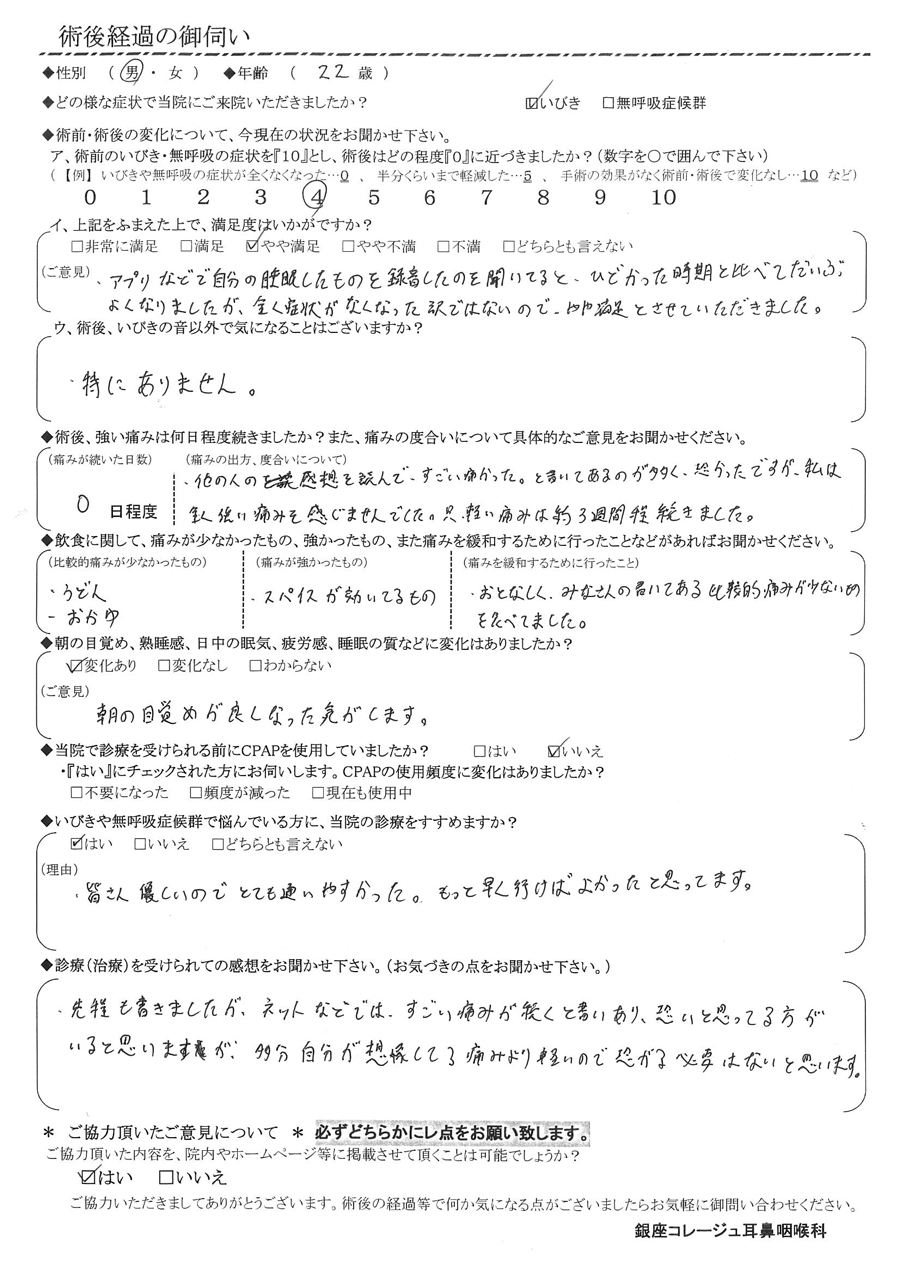 術後経過の御伺い
◆性別 （ 男 ・ 女 ） ◆年齢 （ 22 歳 ）
◆どの様な症状で当院にご来院いただきましたか？ ☑いびき □無呼吸症候群
◆術前・術後の変化について、今現在の状況をお聞かせ下さい。
ア、術前のいびき・無呼吸の症状を『10』とし、術後はどの程度『0』に近づきましたか？（数字を○で囲んで下さい）
（ 【例】 いびきや無呼吸の症状が全くなくなった…0 、 半分くらいまで軽減した…5 、 手術の効果がなく術前・術後で変化なし…10 など）
0 1 2 3 4 5 6 7 8 9 10
イ、上記をふまえた上で、満足度はいかがですか？
□非常に満足 □満足 ☑やや満足 □やや不満 □不満 □どちらとも言えない
（ご意見）
・アプリなどで自分の睡眠したものを録音したのを聞いてると、ひどかった時期と比べてだいぶ
よくなりましたが、全く症状がなくなった訳ではないので、やや満足とさせていただきました。
ウ、術後、いびきの音以外で気になることはございますか？
・特にありません。
◆術後、強い痛みは何日程度続きましたか？また、痛みの度合いについて具体的なご意見をお聞かせください。
（痛みが続いた日数） （痛みの出方、度合いについて）
・他の人の感想を読んで、すごい痛かった。と書いてあるのが多く、恐かったですが、私は
0 日程度
全く強い痛みを感じませんでした。只、軽い痛みは約3週間程続きました。
◆飲食に関して、痛みが少なかったもの、強かったもの、また痛みを緩和するために行ったことなどがあればお聞かせください。
（比較的痛みが少なかったもの） （痛みが強かったもの） （痛みを緩和するために行ったこと）
・うどん ・スパイスが効いてるもの ・おとなしく、みなさんの書いてある比較的痛みが少ないもの
・おかゆ をたべてました。
◆朝の目覚め、熟睡感、日中の眠気、疲労感、睡眠の質などに変化はありましたか？
☑変化あり □変化なし □わからない
（ご意見）
朝の目覚めが良くなった気がします。
◆当院で診療を受けられる前にCPAPを使用していましたか？ □はい ☑いいえ
・『はい』にチェックされた方にお伺いします。CPAPの使用頻度に変化はありましたか？
□不要になった □頻度が減った □現在も使用中
◆いびきや無呼吸症候群で悩んでいる方に、当院の診療をすすめますか？
☑はい □いいえ □どちらとも言えない
（理由）
・皆さん優しいのでとても通いやすかった。もっと早く行けばよかったと思ってます。
◆診療（治療）を受けられての感想をお聞かせ下さい。（お気づきの点をお聞かせ下さい。）
・先程も書きましたが、ネットなどでは、すごい痛みが続くと書いあり、恐いと思ってる方が
いると思いますが、多分自分が想像してる痛みより軽いので恐がる必要はないと思います。
＊ ご協力頂いたご意見について ＊ 必ずどちらかにレ点をお願い致します。
ご協力頂いた内容を、院内やホームページ等に掲載させて頂くことは可能でしょうか？
☑はい □いいえ
ご協力いただきましてありがとうございます。術後の経過等で何か気になる点がございましたらお気軽に御問い合わせください。
銀座コレージュ耳鼻咽喉科